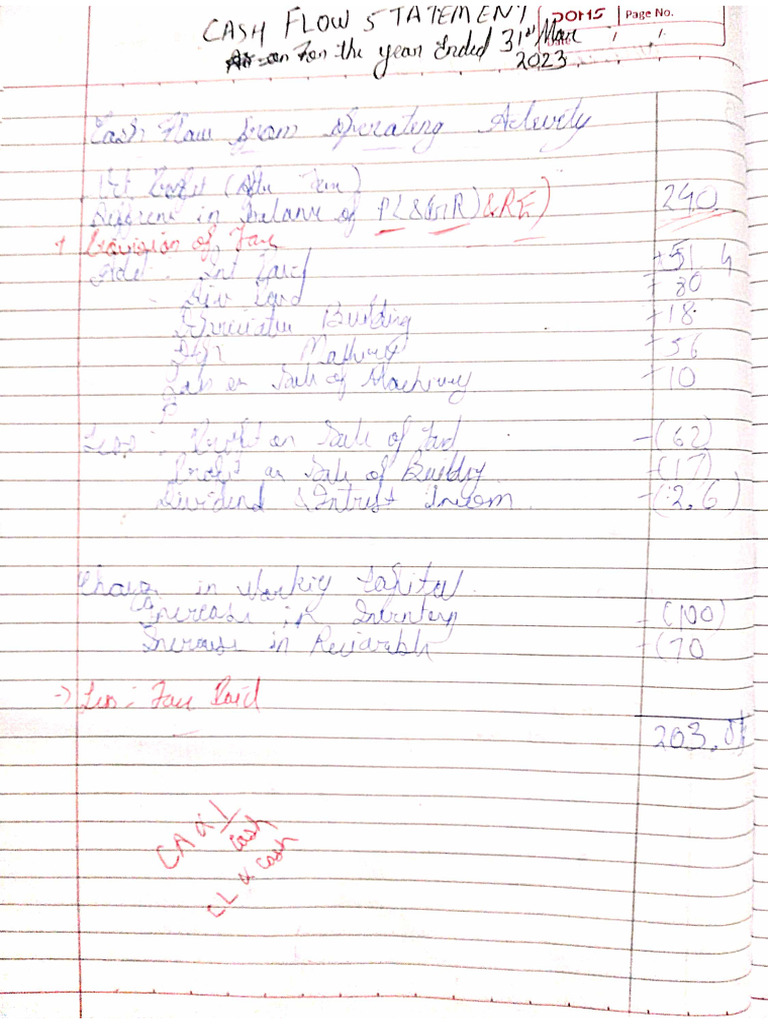 CASH FLOW STATEMENT
DOMS Page No.
Date / /
As on For the year Ended 31st Mar
2023
Cash Flow from Operating Activity
Net Profit (After Tax)
Difference in Balance of PL&(GR)&RE) 240
+ Provision of Tax
Add :- Int Paid +51.4
- Div Paid - 30
Depreciation Building - 18
Machinery - 56
Loss on Sale of Machinery - 10
Less :- Profit on Sale of Land - (62)
Profit on Sale of Building - (17)
Dividend & Intrest Incom - (2.6)
Change in Working Capital
Increase in Inventory - (100)
Increase in Recivable - (70
-> Less :- Tax Paid
203.8
CA ∝ 1/cash
CL ∝ cash